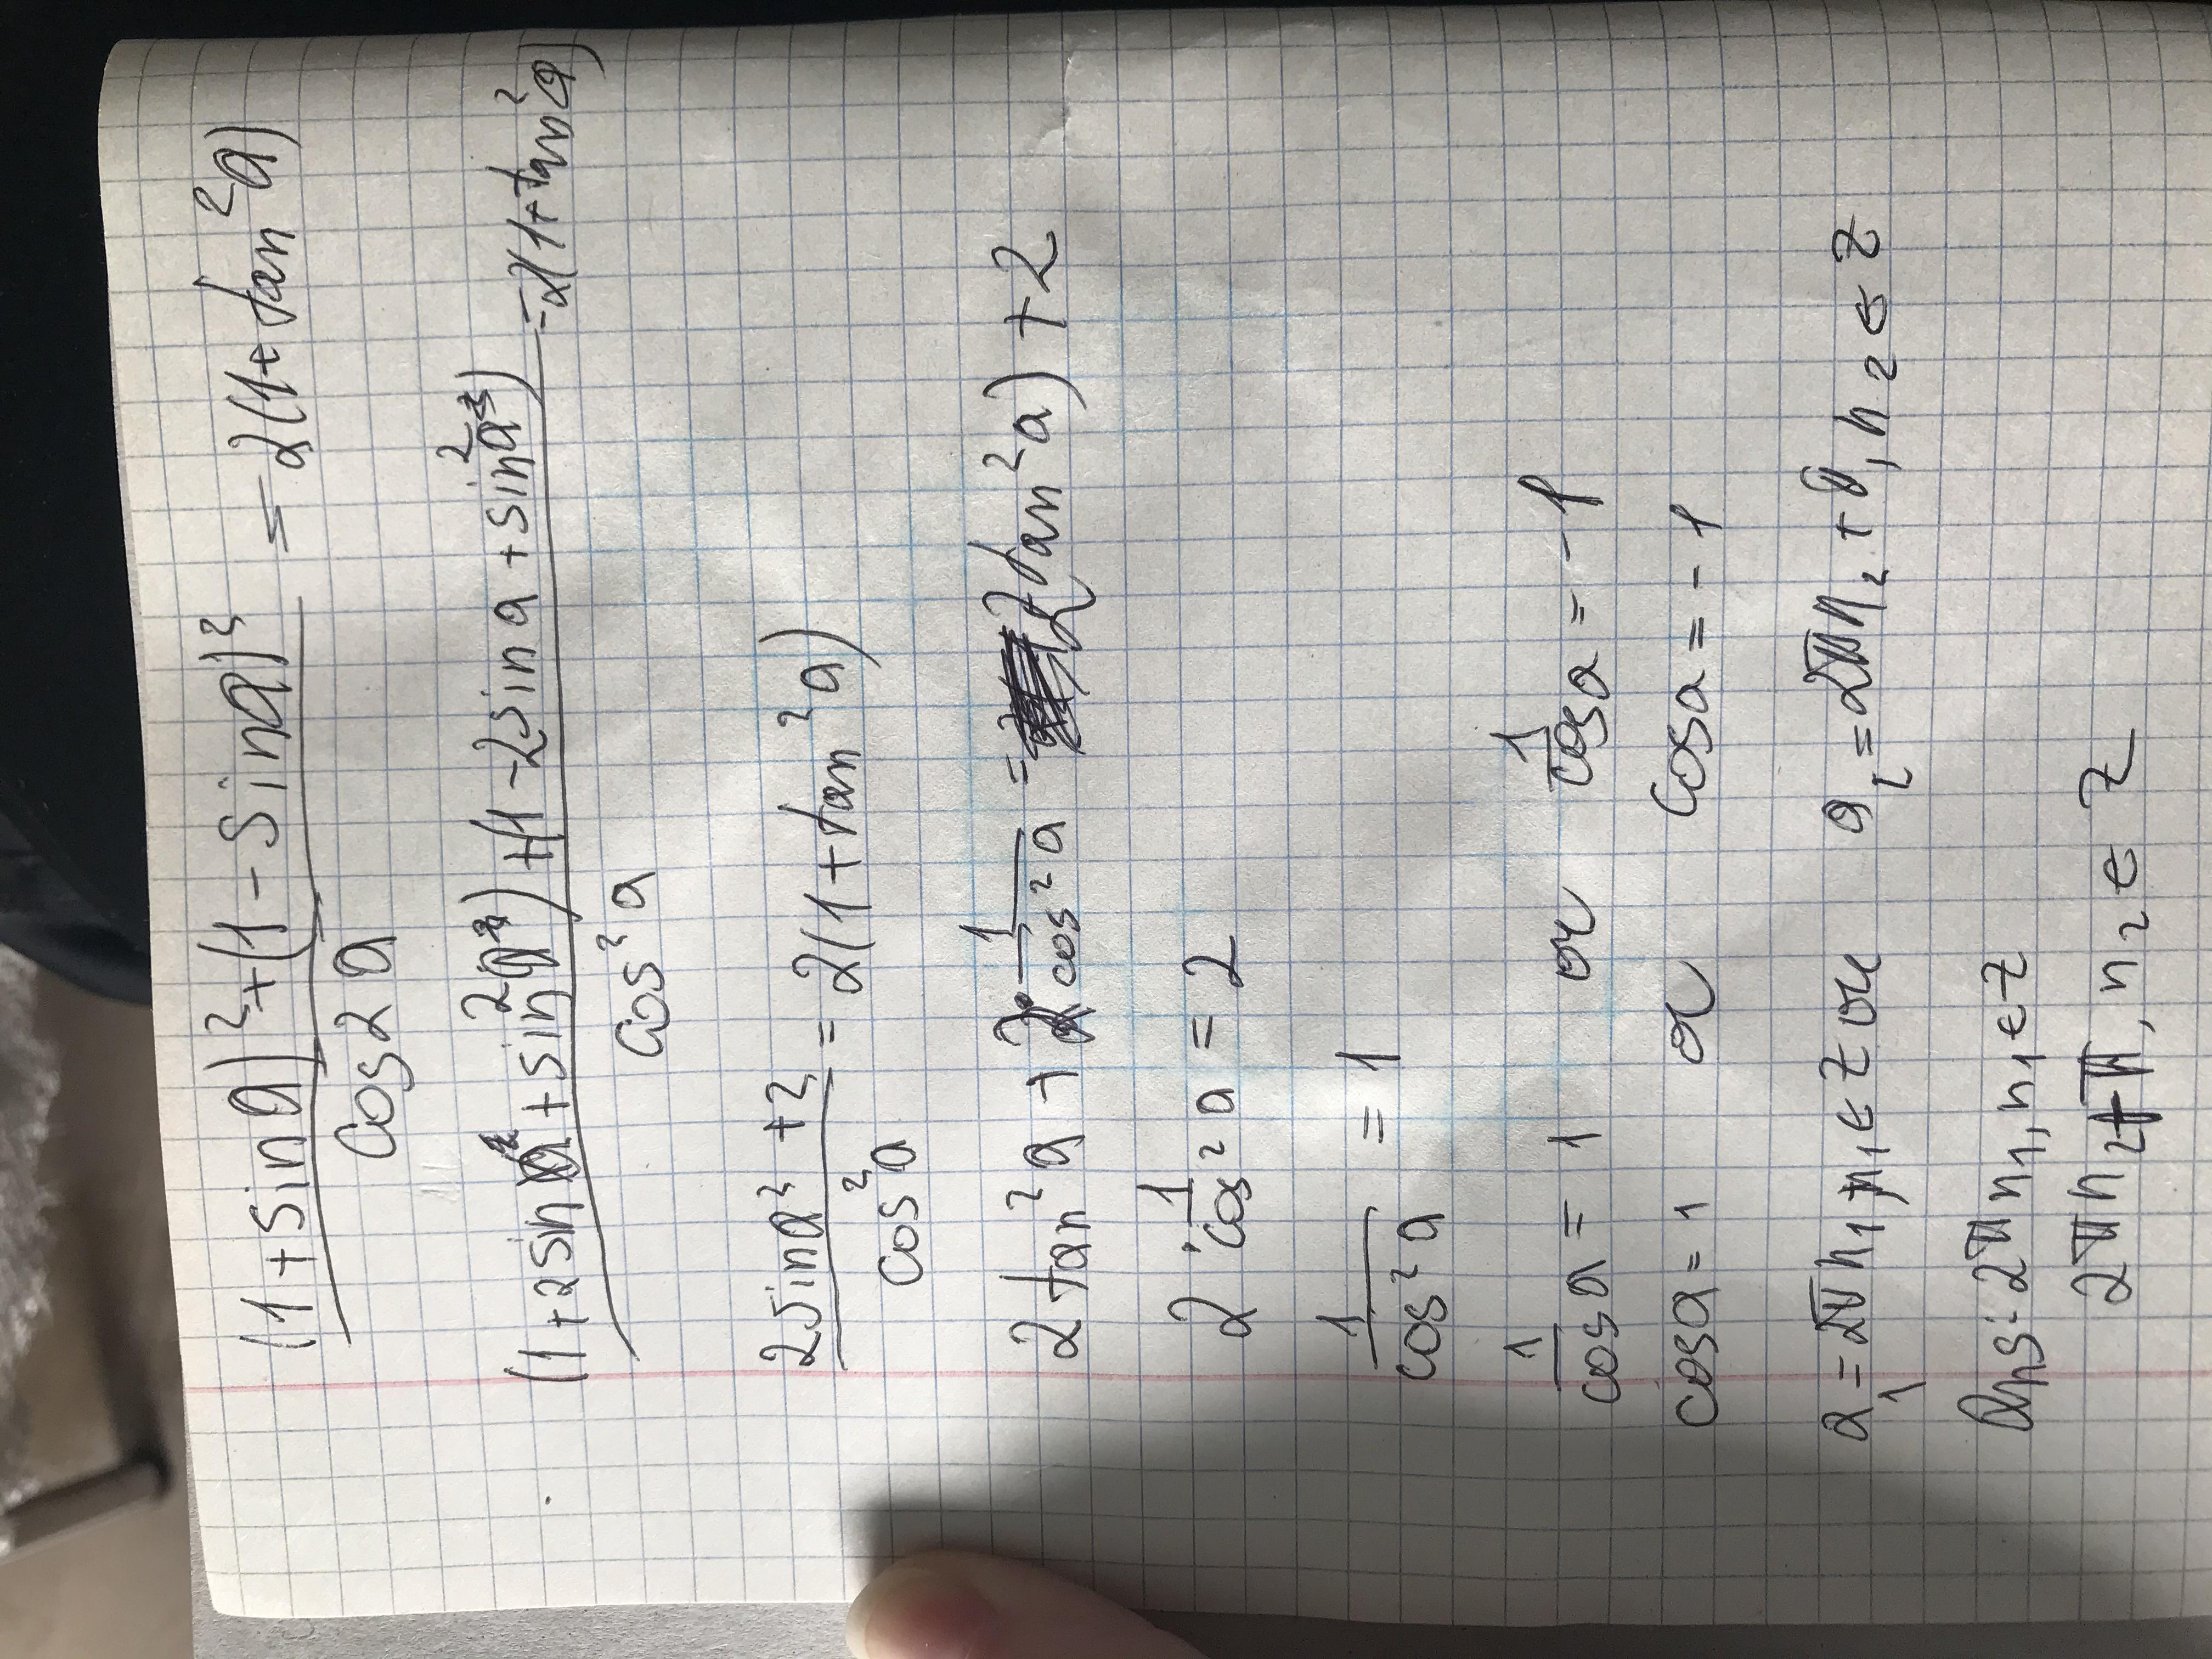 (1+sin a)²+(1-sin a)² / cos 2 a = 2(1+tan²a)
(1+2sin a+sin²a)+(1-2sin a+sin²a) / cos²a = 2(1+tan²a)
2sin a²+2 / cos²a = 2(1+tan²a)
2tan²a+2·1/cos²a = 2tan²a)+2
2·1/cos²a = 2
1/cos²a = 1
1/cos a = 1 or 1/cos a = -1
cos a = 1 or cos a = -1
a₁ = 2πn₁, n₁∈Z or a₂ = 2πn₂+π, n₂∈Z
Ans: 2πn₁, n₁∈Z
2πn₂+π, n₂∈Z